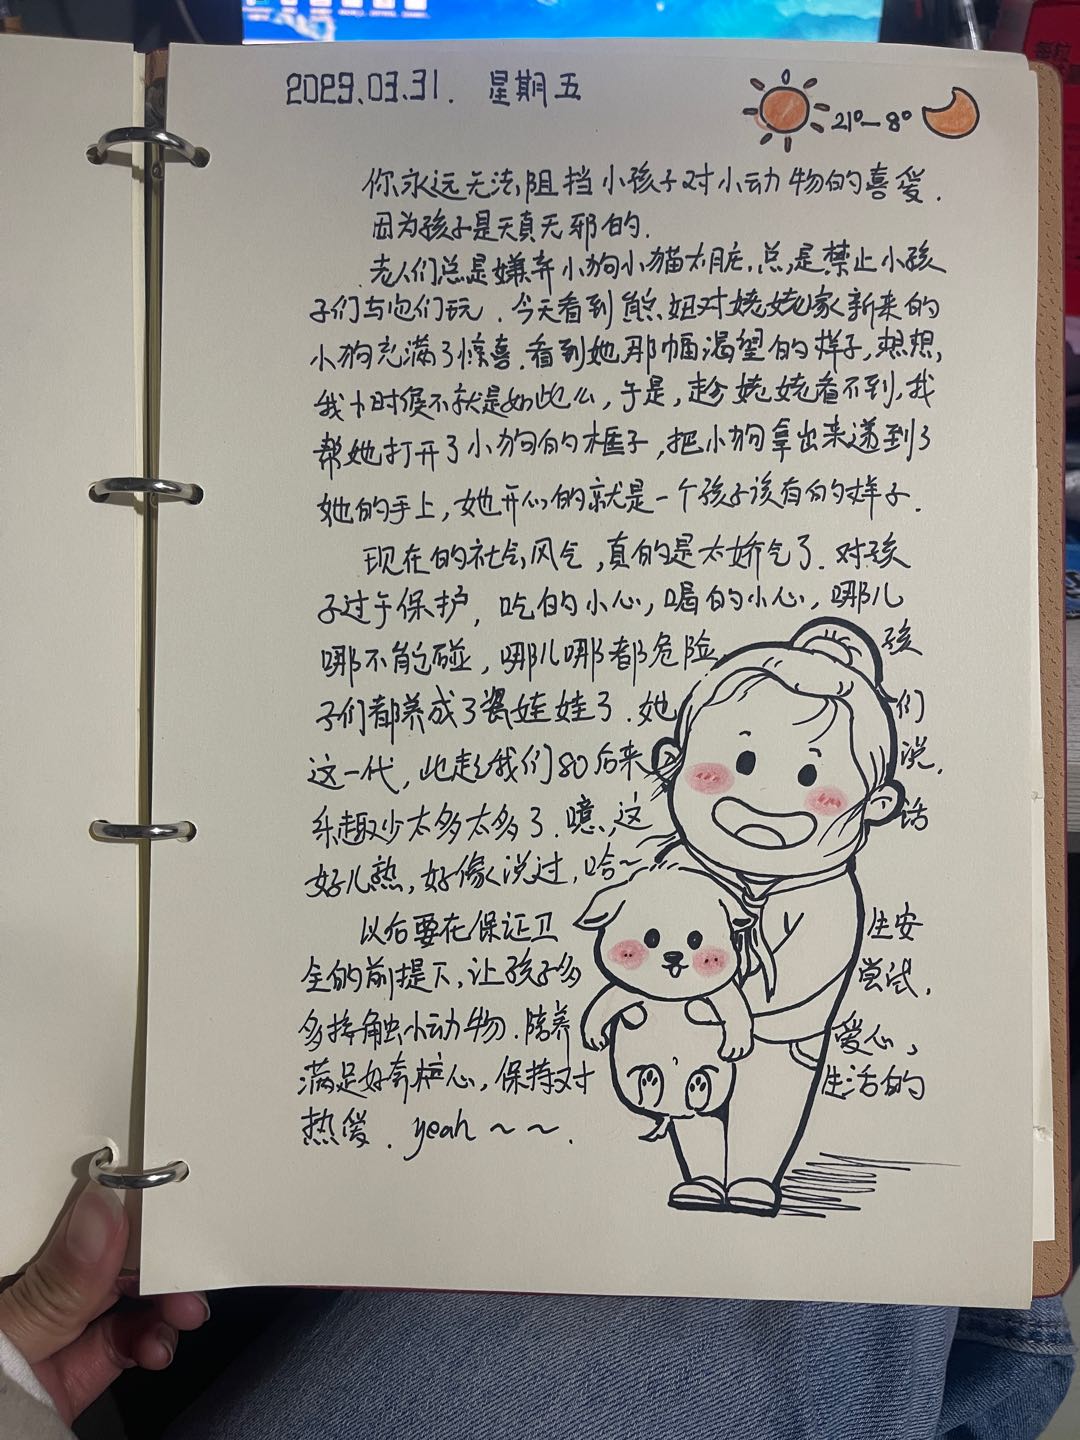 2023.03.31. 星期五
21°—8°
你永远无法阻挡小孩子对小动物的喜爱.
因为孩子是天真无邪的.
老人们总是嫌弃小狗小猫太脏.总是禁止小孩
子们与它们玩.今天看到熊妞对姥姥家新来的
小狗充满了惊喜.看到她那幅渴望的样子,想想,
我小时侯不就是如此么,于是,趁姥姥看不到,我
帮她打开了小狗的框子,把小狗拿出来递到了
她的手上,她开心的就是一个孩子该有的样子.
现在的社会风气,真的是太娇气了.对孩
子过于保护,吃的小心,喝的小心,哪儿
哪不能碰,哪儿哪都危险 孩
子们都养成了瓷娃娃了.她 们
这一代,比起我们80后来 说,
乐趣少太多太多了.噫,这 话
好儿熟,好像说过,哈~
以后要在保证卫 生安
全的前提下,让孩子多 尝试,
多接触小动物.陪养 爱心,
满足好奇心,保持对 生活的
热爱.yeah~~.